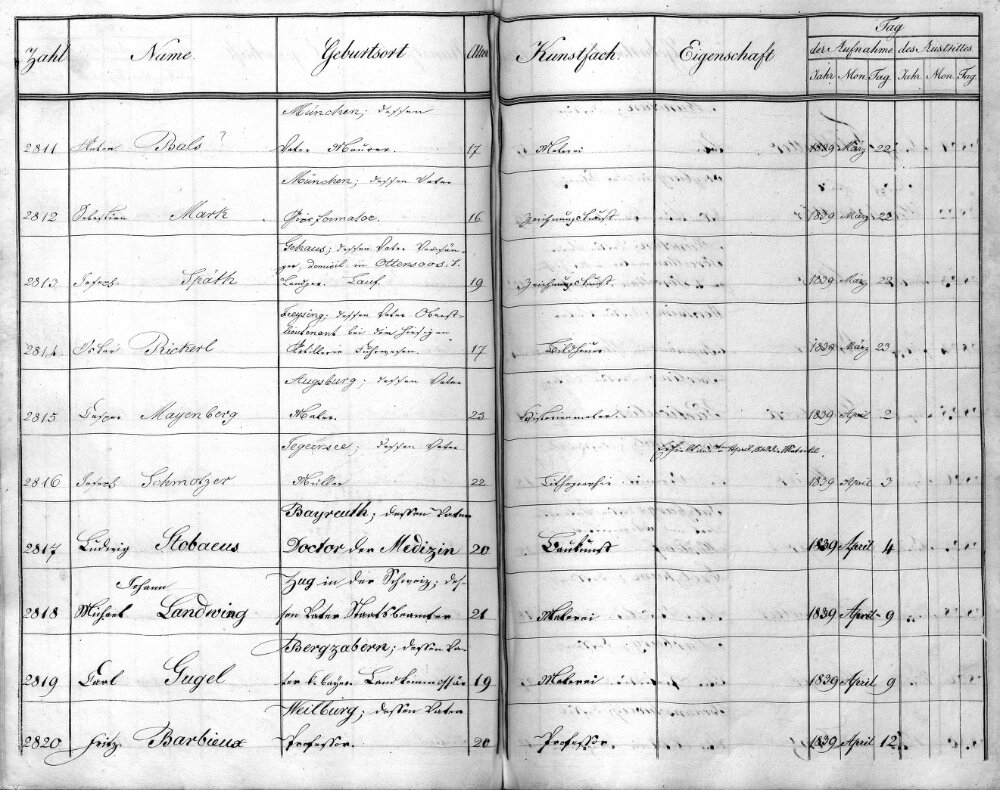 Zahl Name Geburtsort Alter Kunstfach Eigenschaft Tag
der Aufnahme des Austrittes
Jahr Mon. Tag Jahr. Mon. Tag
München; dessen
2811 Bals ? Vater Maurer. 17 Malerei 1839 März 22
München; dessen Vater
2812 Sebastian Mark 16 Zeichnungskunst 1839 März 22
Gehaus; dessen Vater
domicil. in Ottensoos,
2813 Joseph Späth Landger. Lauf 19 Zeichnungskunst 1839 März 22
Freysing; dessen Vater Oberst-
lieutenant bei dem hiesigen
2814 Rickerl Artillerie 17 Bildhauer 1839 März 23
Augsburg; dessen Vater
2815 Caspar Mayenberg Maler. 23 Historienmaler 1839 April 2
Tegernsee; dessen Vater
2816 Joseph Schmotzer Müller 22 Lithographie 1839 April 3
Bayreuth; dessen Vater
2817 Ludwig Stobaeus Doctor der Medizin 20 Baukunst 1839 April 4
Johann Zug in der Schweiz; des-
2818 Michael Landwing sen Vater Staatsbeamter 21 Malerei 1839 April 9
Bergzabern; dessen Va-
2819 Carl Gugel ter k. bayer. Landkommissär 19 Malerei 1839 April 9
Weilburg; dessen Vater
2820 Fritz Barbieux Professor. 20 Professor 1839 April 12